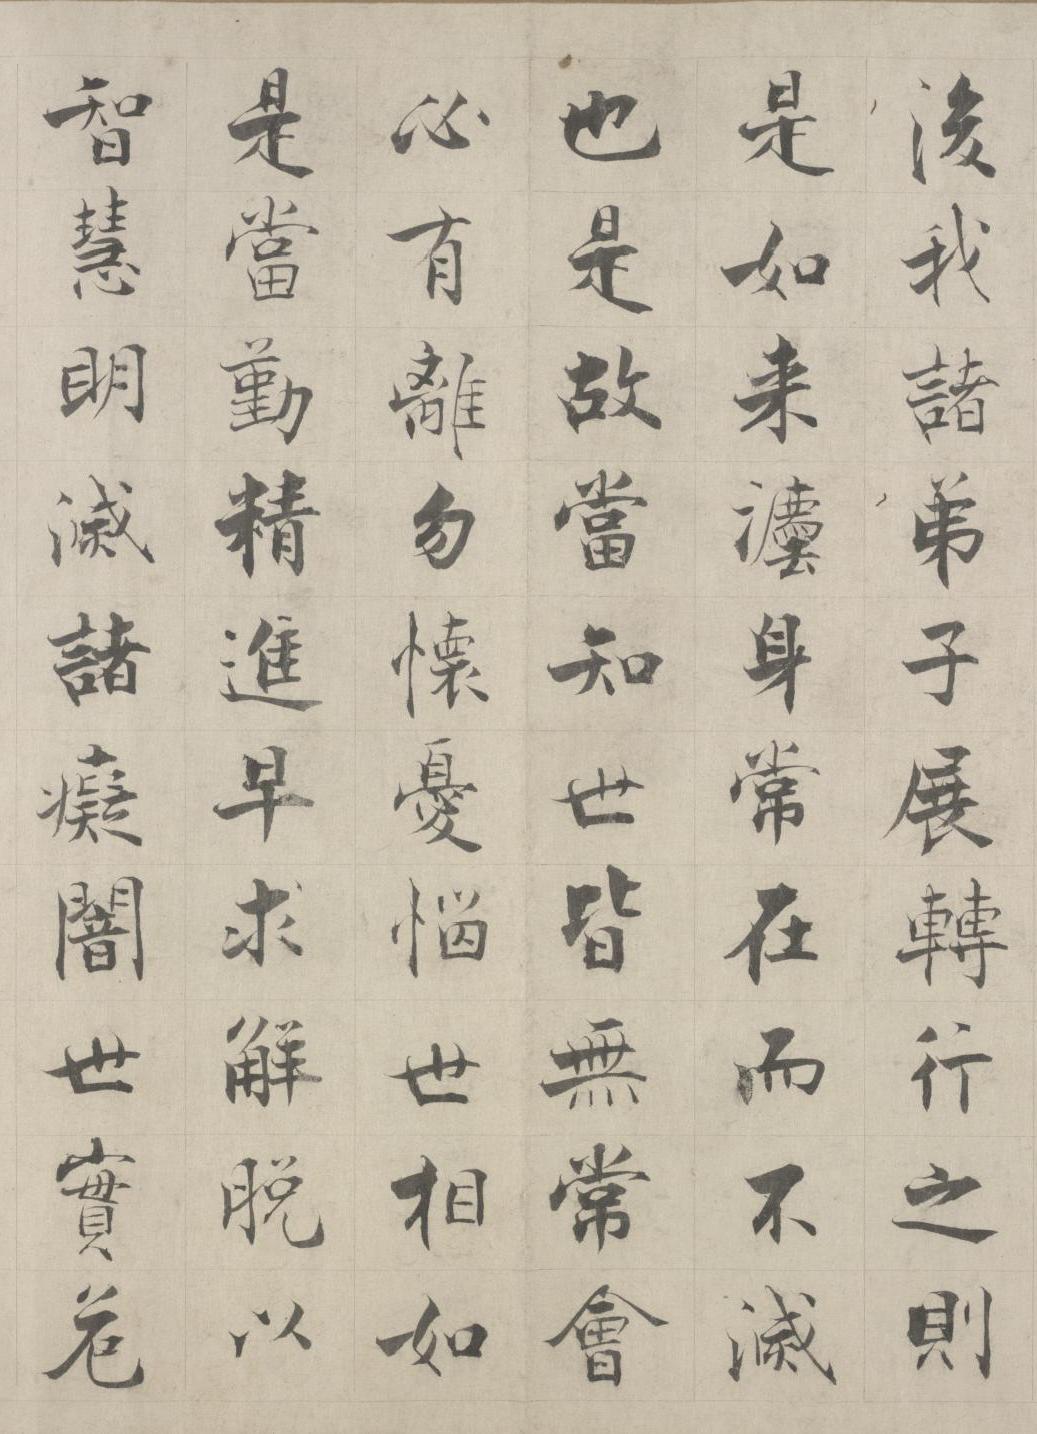 後我諸弟子展轉行之則
是如来瀍身常在而不滅
也是故當知世皆無常會
必有離勿懐憂惱世相如
是當勤精進早求解脱以
智慧明滅諸癡闇世實危